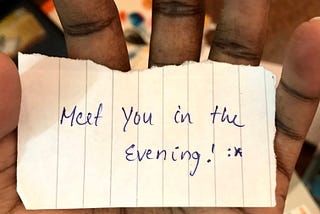 Meet you in the
Evening! :*